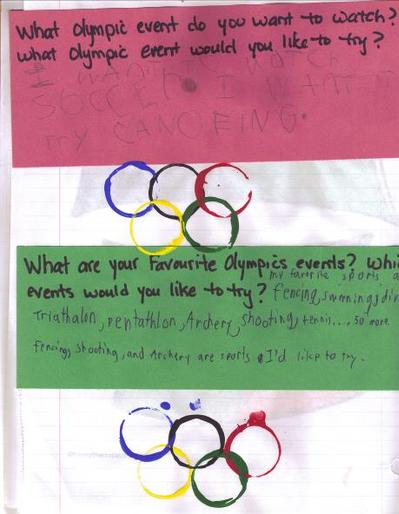 What Olympic event do you want to watch?
what Olympic event would you like to try?
I WANT WATCH
SOCCER I WANT
my CANOEING.
What are your Favourite Olympics events? Whi
events would you like to try?
my favorite sports a
fencing, swimming, div
Triathalon, pentathlon, Archery, shooting, tennis...., so more.
Fencing, Shooting, and Archery are sports I'd like to try.